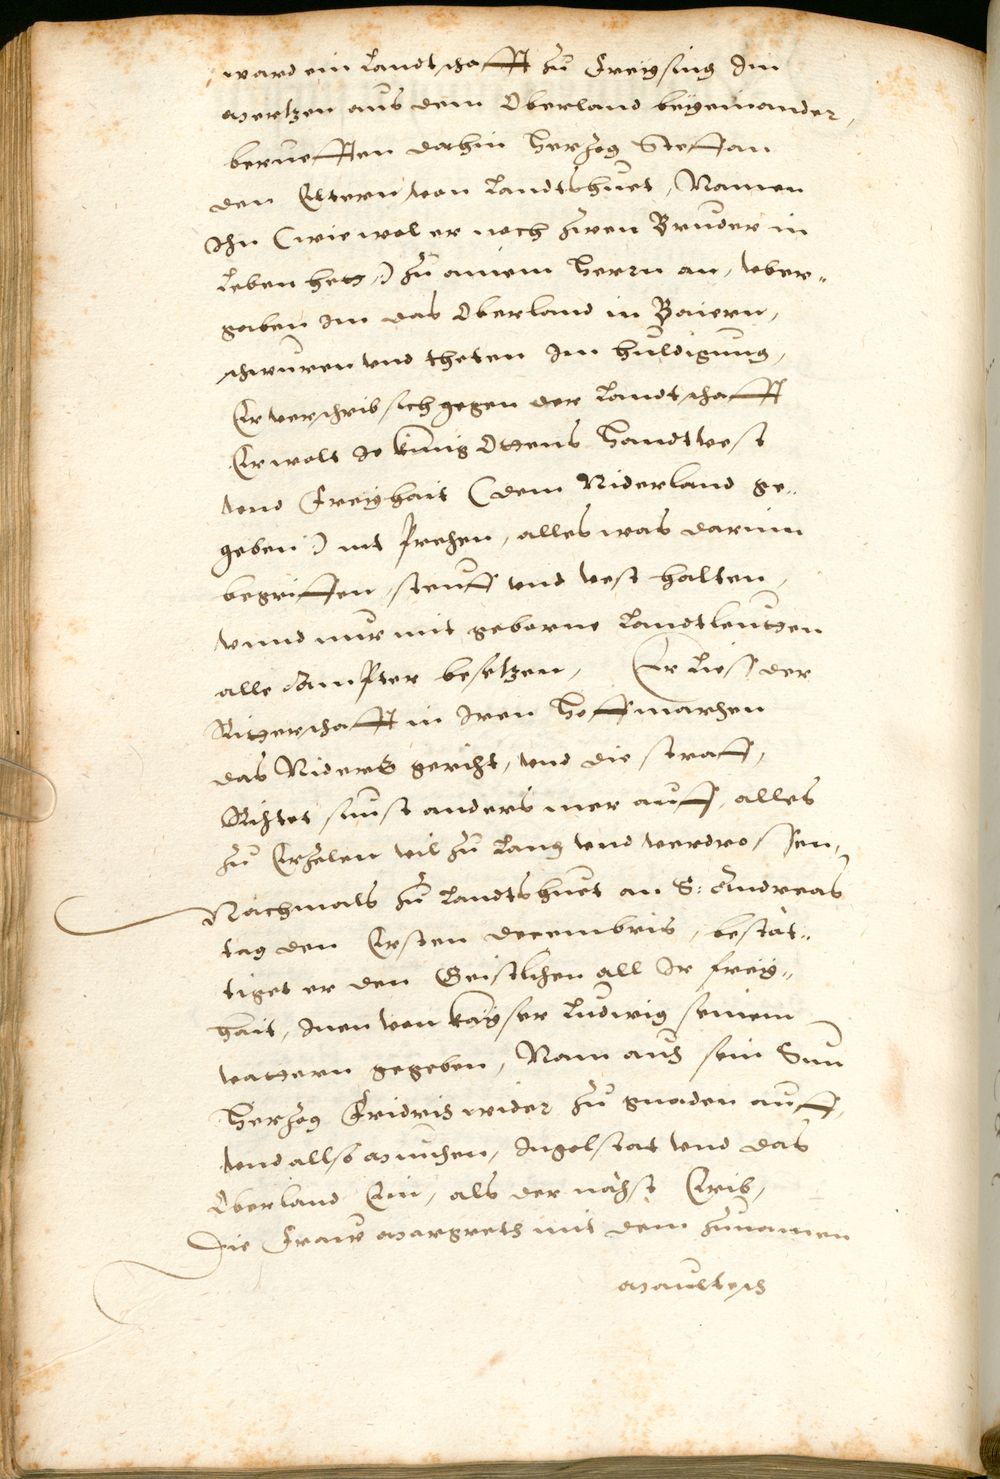 ward ein Landtschafft zu Freysing Im
Mertzen aus dem Oberland beyeinander,
berueffen dahin Hertzog Steffan
den Eltern von Landtshuet, Namen
Ihn (wie wol er noch zwen Bruder in
Leben hett,) zu ainem Herrn an, vber„
gaben Im das Oberland in Baiern,
schwuren vnd theten Im huldigung,
Er verschrib sich gegen der Landtschafft
Er wolt Ir künig Ottens Handtvest
vnd Freyhait (dem Niderland ge„
geben) nit prechen, alles was darinn
begriffen, steuff vnd vest halten,
vnnd nur mit geborne Landtleutten
alle Ämpter besetzen, Er Liess der
Ritterschafft in Iren Hoffmarchen
das Niders gericht, vnd die straff,
Richtet sunst anders mer auff, alles
zu Erzelen vil zu Lang vnd verdrossen,
Nachmals zu Landtshuet an S: Andreas
tag den Ersten decembris, bestät„
tiget er den Geistlichen all Ir frey„
hait, Inen von kayser Ludwig seinem
vattern gegeben, Nam auch sein Sun
Hertzog Fridrich wider zu gnaden auff,
vnd allso München, Ingolstat vnd das
Oberland Ein, als der nächst Erib,
Die Fraw Margreth mit dem zunamen
Maultesch